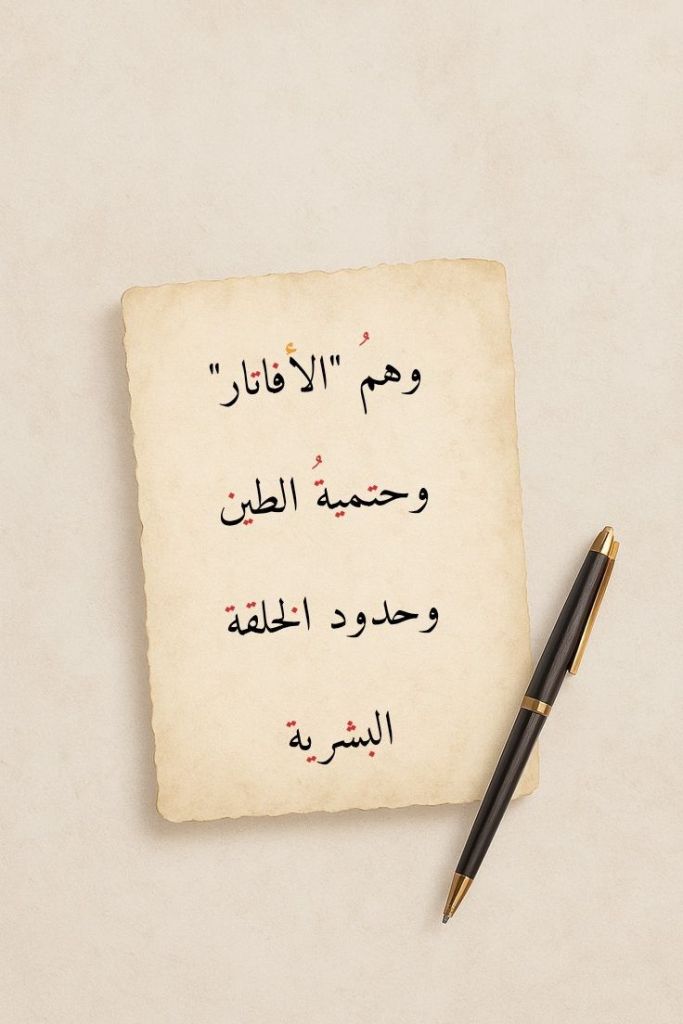 وهمُ "الأفاتار"
وحتميةُ الطين
وحدود الخلقة
البشرية